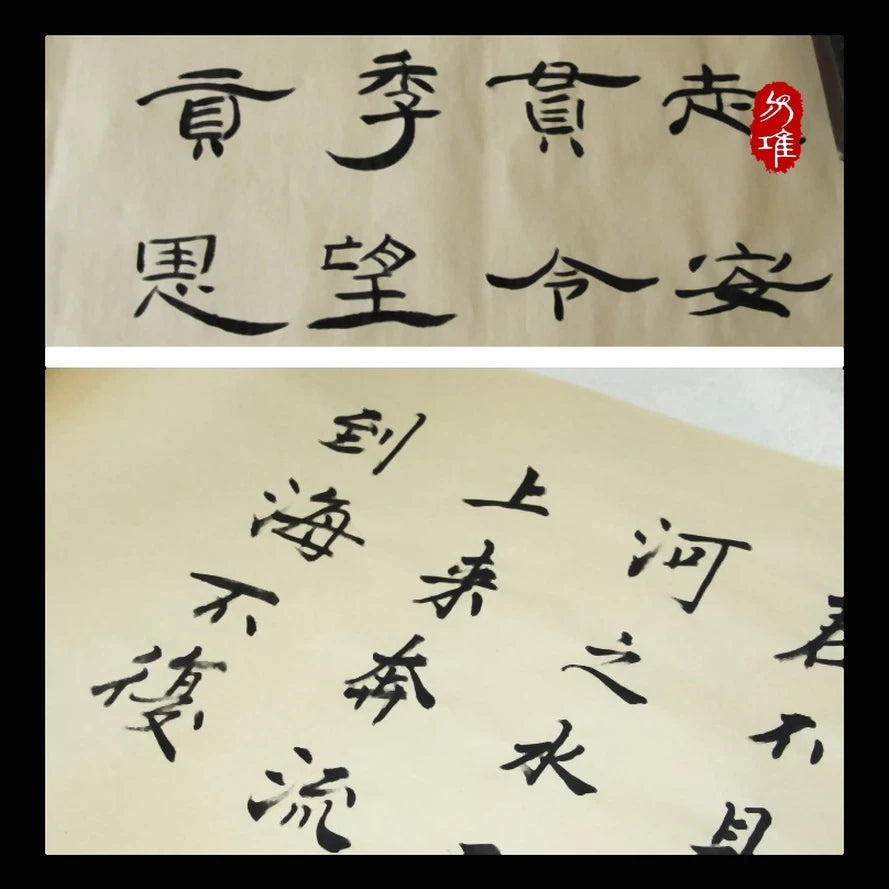 走安
貫令
季望
貢
君不
河之水
上來奔流
到海不復